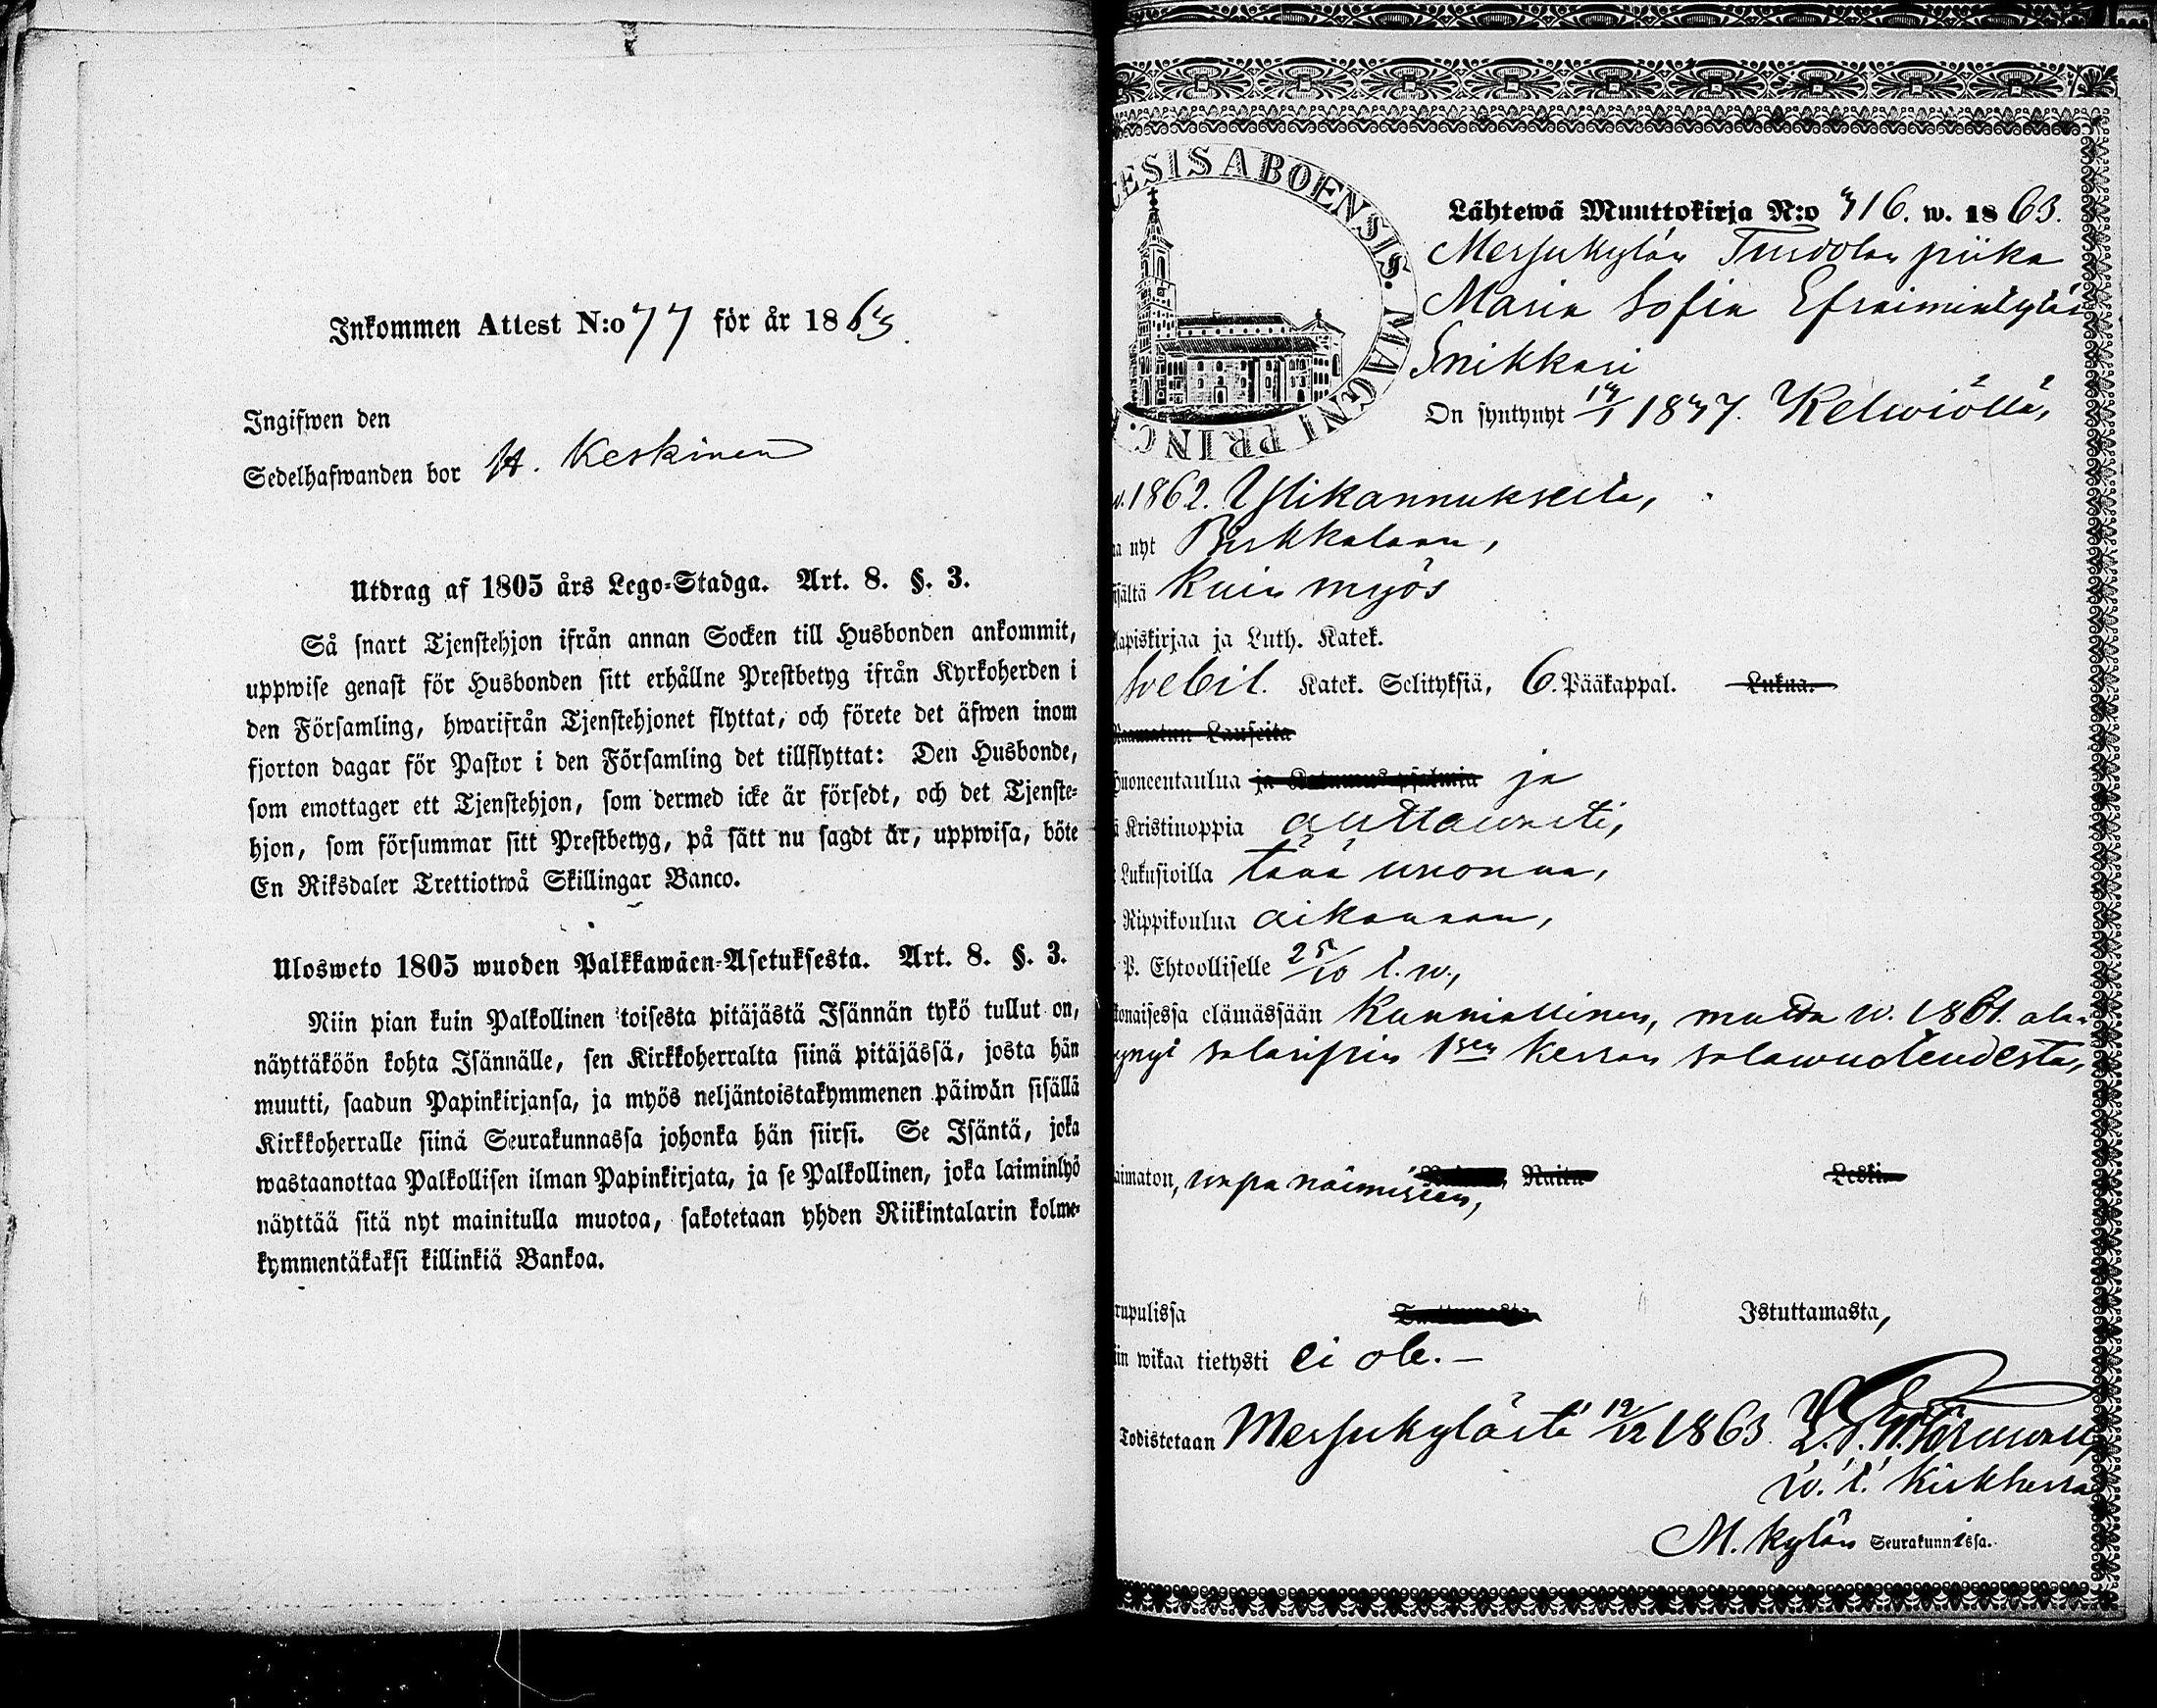 Inkommen Attest N:o 77 för år 1863.
Ingifwen den
Sedelhafwanden bor H. Keskinen
Utdrag af 1805 års Lego-Stadga. Art. 8. §. 3.
Så snart Tjenstehjon ifrån annan Socken till Husbonden ankommit,
uppwise genast för Husbonden sitt erhållne Prestbetyg ifrån Kyrkoherden i
den Församling, hwarifrån Tjenstehjonet flyttat, och förete det äfwen inom
fjorton dagar för Pastor i den Församling det tillflyttat: Den Husbonde,
som emottager ett Tjenstehjon, som dermed icke är försedt, och det Tjenste-
hjon, som försummar sitt Prestbetyg, på sätt nu sagdt är, uppwisa, böte
En Riksdaler Trettiotwå Skillingar Banco.
Ulosweto 1805 wuoden Palkkawäen-Asetuksesta. Art. 8. §. 3.
Niin pian kuin Palkollinen toisesta pitäjästä Isännän tykö tullut on,
näyttäköön kohta Isännälle, sen Kirkkoherralta siinä pitäjässä, josta hän
muutti, saadun Papinkirjansa, ja myös neljäntoistakymmenen päiwän sisällä
Kirkkoherralle siinä Seurakunnassa johonka hän siirsi. Se Isäntä, joka
wastaanottaa Palkollisen ilman Papinkirjata, ja se Palkollinen, joka laiminlyö
näyttää sitä nyt mainitulla muotoa, sakotetaan yhden Riikintalarin kolme-
kymmentäkaksi killinkiä Bankoa.
ESIS ABOENSIS. MAGNI PRINC.
Lähtewä Muuttokirja N:o 316. w. 1863.
Messukylän piika
Maria Sofia Efraimintytär
Snikkari
On syntynyt 1837. Kelwiöllä,
w. 1862. Ylikannukselta,
nyt Pirkkalaan,
kuin myös
apiskirjaa ja Luth. Katek.
Swebil. Katek. Selityksiä, 6. Pääkappal. Lukua.
Raamatun Lauseita
Huoneentaulua ja Katumus-psalmia ja
Kristinoppia auttawasti,
Lukusioilla tänä wuonna,
Rippikoulua aikanaan,
P. Ehtoolliselle 25/10 t. w.,
elämässään kunniallinen, mutta w. 1861 ola-
salaripin 1sen kerran salawuoteudesta,
aimaton, wapa naimiseen, Naita Leski
rupulissa Istuttamasta,
wikaa tietysti ei ole.—
Todistetaan Messukylästä 19/12 1863.
w. t. Kirkkherra
M. kylän Seurakunnissa.